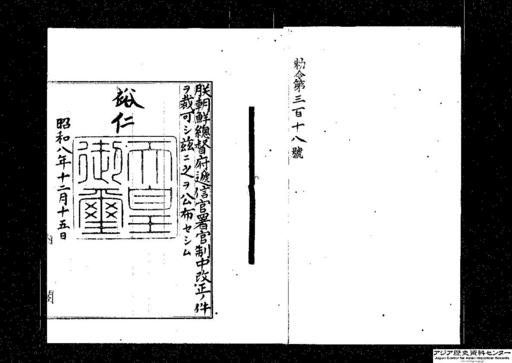 勅令第三百十八號
朕朝鮮總督府遞信官署官制中改正ノ件
ヲ裁可シ茲ニ之ヲ公布セシム
裕仁
天皇御璽
昭和八年十二月十五日
内閣
アジア歴史資料センター
Japan Center for Asian Historical Records